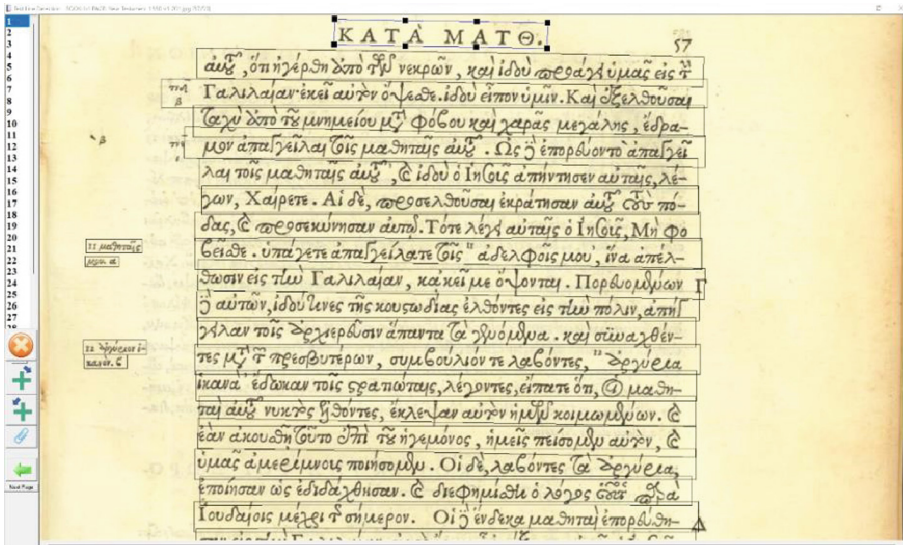 ΚΑΤᾺ ΜΑΤΘ.
57
αὐτοῦ, ὅτι ἠγέρθη ἀπὸ τῶν νεκρῶν, καὶ ἰδοὺ προάγει ὑμᾶς εἰς τὴν
Γαλιλαίαν· ἐκεῖ αὐτὸν ὄψεσθε. ἰδοὺ εἶπον ὑμῖν. Καὶ ἐξελθοῦσαι
ταχὺ ἀπὸ τοῦ μνημείου μετὰ φόβου καὶ χαρᾶς μεγάλης, ἔδρα-
μον ἀπαγγεῖλαι τοῖς μαθηταῖς αὐτοῦ. Ὡς δὲ ἐπορεύοντο ἀπαγγεῖ
λαι τοῖς μαθηταῖς αὐτοῦ, καὶ ἰδοὺ ὁ Ἰησοῦς ἀπήντησεν αὐταῖς, λέ-
γων, Χαίρετε. Αἱ δὲ, προσελθοῦσαι ἐκράτησαν αὐτοῦ τοὺς πό-
δας, καὶ προσεκύνησαν αὐτῷ. Τότε λέγει αὐταῖς ὁ Ἰησοῦς, Μὴ φο
βεῖσθε. ὑπάγετε ἀπαγγείλατε τοῖς 11 ἀδελφοῖς μου, ἵνα ἀπέλ-
θωσιν εἰς τὴν Γαλιλαίαν, κἀκεῖ με ὄψονται. Πορευομένων Γ
δὲ αὐτῶν, ἰδού τινες τῆς κουστωδίας ἐλθόντες εἰς τὴν πόλιν, ἀπήγ
γειλαν τοῖς ἀρχιερεῦσιν ἅπαντα τὰ γενόμενα. καὶ συναχθέν-
τες μετὰ τῶν πρεσβυτέρων, συμβούλιόν τε λαβόντες, 12 ἀργύρια
ἱκανὰ ἔδωκαν τοῖς στρατιώταις, λέγοντες, εἴπατε ὅτι, οἱ μαθη-
ταὶ αὐτοῦ νυκτὸς ἐλθόντες, ἔκλεψαν αὐτὸν ἡμῶν κοιμωμένων. καὶ
ἐὰν ἀκουσθῇ τοῦτο ἐπὶ τοῦ ἡγεμόνος, ἡμεῖς πείσομεν αὐτὸν, καὶ
ὑμᾶς ἀμερίμνους ποιήσομεν. Οἱ δὲ, λαβόντες τὰ ἀργύρια,
ἐποίησαν ὡς ἐδιδάχθησαν. καὶ διεφημίσθη ὁ λόγος οὗτος παρὰ
Ἰουδαίοις μέχρι τῆς σήμερον. Οἱ δὲ ἕνδεκα μαθηταὶ ἐπορεύθη-
11 μαθηταῖς
μου. α
12 ἀργύριον ἱ-
κανόν. ϛ
1
2
3
4
5
6
7
8
9
10
11
12
13
14
15
16
17
18
19
20
21
22
23
24
25
26
27
Next Page